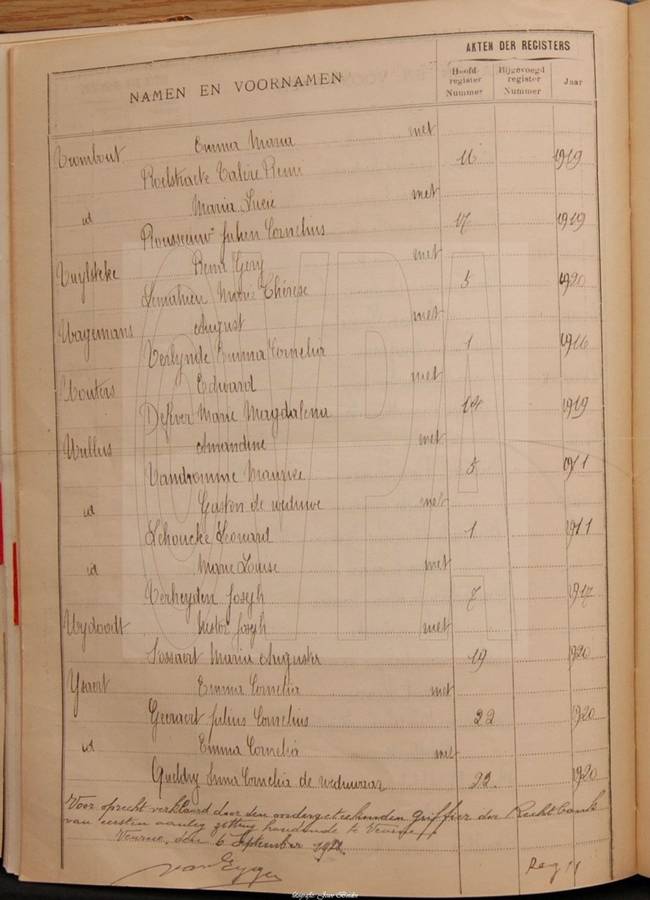 AKTEN DER REGISTERS
NAMEN EN VOORNAMEN
Hoofd-register Nummer
Bijgevoegd register Nummer
Jaar
Emma Maria met
Roelstraete Valère Remi 11 1919
id Maria Lucie met
Rousseeuw Julien Cornelius 17 1919
Vuylsteke Remi Gery met
Lemahieu Marie Thérèse 5 1920
Wagemans August met
Verlynde Emma Cornelia 1 1916
Wouters Edward met
Marie Magdalena 14 1919
Wullus Amandine met
Vandromme Maurice 5 1911
id Gaston de weduwe met
Lehoucke Leonard 1 1911
id Marie Louise met
Verheyden Joseph 7 1917
Wydoodt Nestor Joseph met
Maria Augusta 19 1920
Ysaert Emma Cornelia met
Geeraert Julius Cornelius 22 1920
id Emma Cornelia met
Anna Cornelia de weduwnaar 22. 1920
Voor oprecht verklaard door den ondergeteekenden Griffier der Rechtbank
van eersten aanleg zitting houdende te Veurne
Veurne, den 6 September